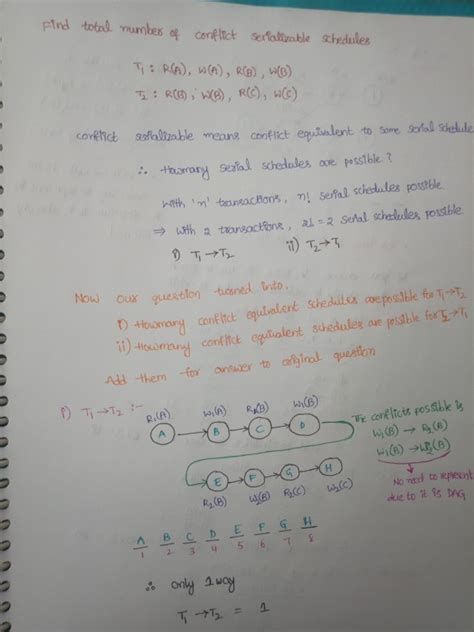 Find total number of conflict serializable schedules
T1 : R(A), W(A), R(B), W(B)
T2 : R(B), W(B), R(C), W(C)
conflict serializable means conflict equivalent to some serial schedule
∴ Howmany serial schedules are possible?
with 'n' transactions, n! serial schedules possible
⇒ with 2 transactions, 2! = 2 serial schedules possible
i) T1 → T2 ii) T2 → T1
Now our question turned into,
i) Howmany conflict equivalent schedules are possible for T1 → T2
ii) Howmany conflict equivalent schedules are possible for T2 → T1
Add them for answer to original question
i) T1 → T2 :-
R1(A) W1(A) R1(B) W1(B)
A → B → C → D
conflicts possible is
W1(B) → R2(B)
W1(B) → W2(B)
No need to represent
due to it is DAG
E → F → G → H
R2(B) W2(B) R2(C) W2(C)
A B C D E F G H
1 2 3 4 5 6 7 8
∴ only 1 way
T1 → T2 = 1